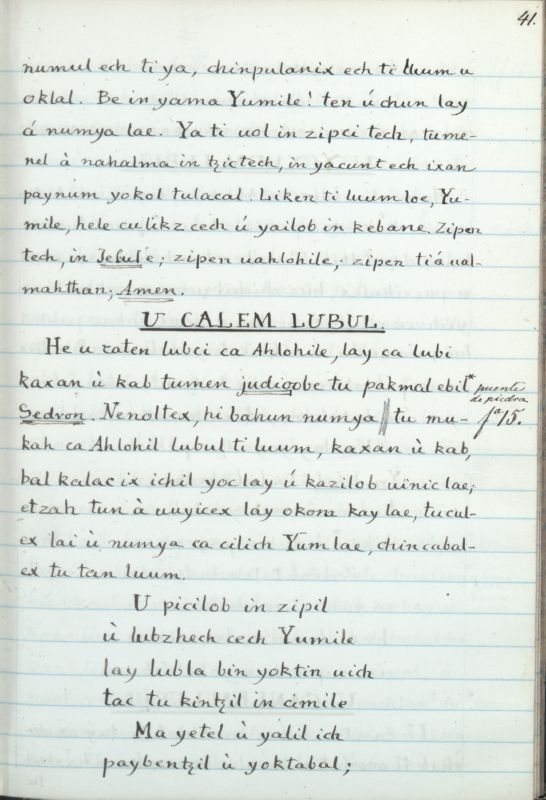 41.
numul ech ti ya, chinpulanix ech ti luum u
oklal. Be in yama Yumile! ten ú chun lay
á numya lae. Ya ti uol in zipci tech, tume-
nel à nahalma in tzictech, in yacunt ech ixan
paynum yokol tulacal. Liken ti luum loe, Yu-
mile, hele culikz cech ú yailob in kebane. Zipen
tech, in Jesus e; zipen uahlohile; zipen ti á ual-
mahthan; Amen.
U CALEM LUBUL.
He u zaten lubci ca Ahlohile, lay ca lubi
kaxan ù kab tumen judioobe tu pakmal ebil* puente
Sedron. Nenoltex, hi bahun numya // tu mu- de piedra
kah ca Ahlohil lubul ti luum, kaxan ù kab, fª 15.
bal kalac ix ichil yoc lay ú kazilob uinic lae;
etzah tun à uuyicex lay okom kay lae, tucul-
ex lai ù numya ca cilich Yum lae, chincabal-
ex tu tan luum.
U picilob in zipil
ù lubzhech cech Yumile
lay lubla bin yoktin uich
tac tu kintzil in cimile
Ma yetel ù yalil ich
paybentzil ù yoktabal;